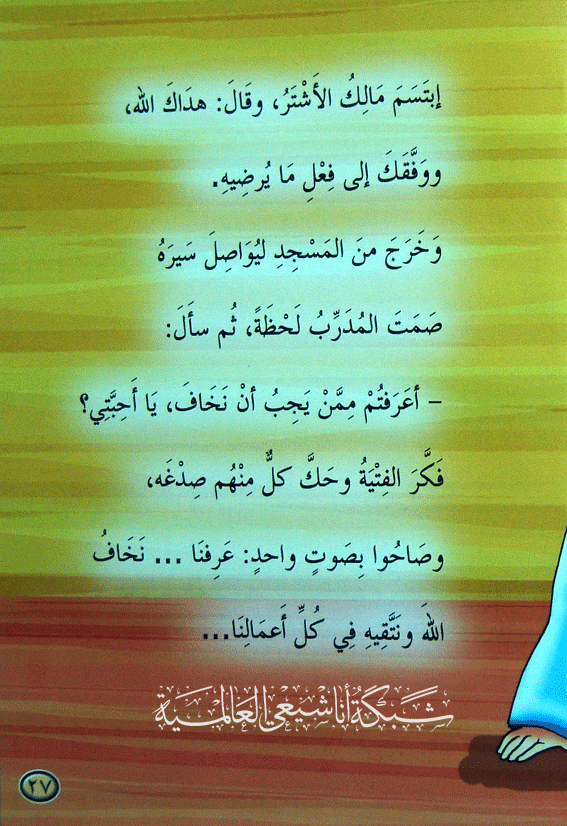 إبتَسَمَ مَالِكُ الأَشْتَرُ، وقَالَ: هدَاكَ الله،
ووَفَّقَكَ إلى فِعْلِ مَا يُرضِيهِ.
وَخَرَجَ منَ المَسْجِدِ ليُوَاصِلَ سَيرَهُ
صَمَتَ المُدَرِّبُ لَحْظَةً، ثُم سأَلَ:
- أعَرَفتُمْ مِمَّنْ يَجِبُ أنْ نَخَافَ، يَا أَحِبَّتِي؟
فَكَّرَ الفِتْيَةُ وحَكَّ كلٌّ مِنْهُم صِدْغَه،
وصَاحُوا بِصَوتٍ واحدٍ: عَرِفنَا ... نَخَافُ
اللهَ ونَتَّقِيهِ فِي كُلِّ أَعمَالِنَا...
شَبَكَةُ أنا شيعي العَالَمية
٢٧